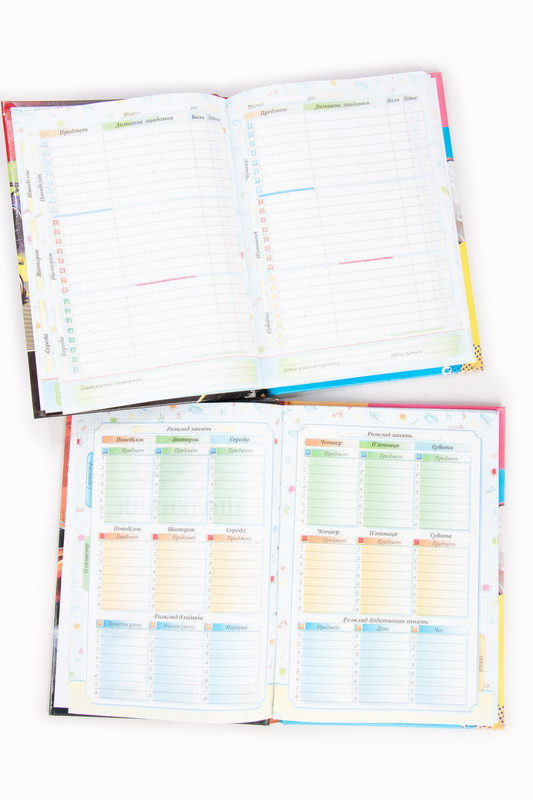 Предмет Домашнє завдання
Понеділок
Вівторок
Середа
Предмет Домашнє завдання
Четвер
П'ятниця
Субота
Розклад занять
Понеділок Вівторок Середа
Предмет Предмет Предмет
Понеділок Вівторок Середа
Предмет Предмет Предмет
Розклад дзвінків
Початок уроку Кінець уроку Перерва
I семестр
II семестр
Розклад занять
Четвер П'ятниця Субота
Предмет Предмет Предмет
Четвер П'ятниця Субота
Предмет Предмет Предмет
Розклад додаткових занять
Предмет День Час